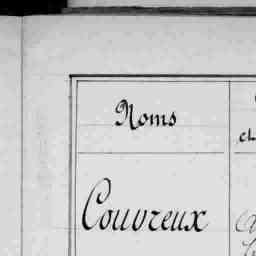 Noms
Couvreux